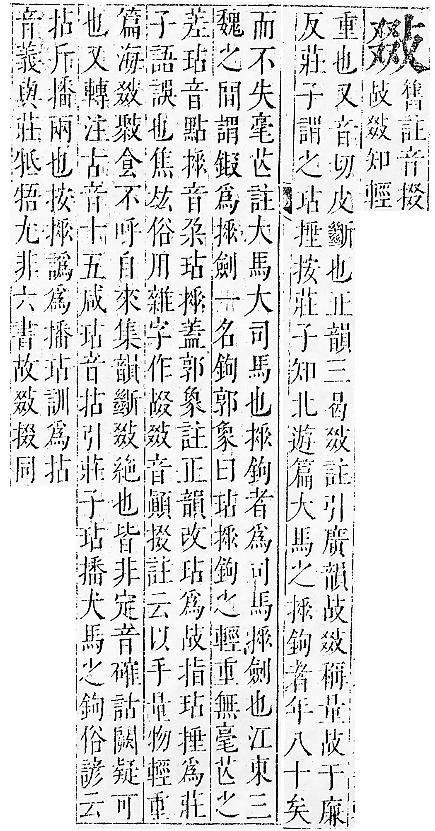 敪
舊註音掇
敁敪知輕
重也又音切皮斷也正韻三曷敪註引廣韻敁敪稱量敁于廉
反莊子謂之玷捶按莊子知北遊篇大馬之捶鉤者年八十矣
而不失毫芒註大馬大司馬也捶鉤者爲司馬捶劍也江東三
魏之間謂鍜爲捶劍一名鉤郭象曰玷捶鉤之輕重無毫芒之
差玷音點捶音朶玷捶蓋郭象註正韻改玷爲敁指玷捶爲莊
子語誤也焦竑俗用雜字作敁敪音顚掇註云以手量物輕重
篇海敪不呼自來集韻斷敪絶也皆非定音確詁闕疑可
也又轉注古音十五咸玷音拈引莊子玷播犬馬之鉤俗諺云
拈斤播兩也按捶譌爲播玷訓爲拈
音義與莊牴牾尤非六書故敪掇同